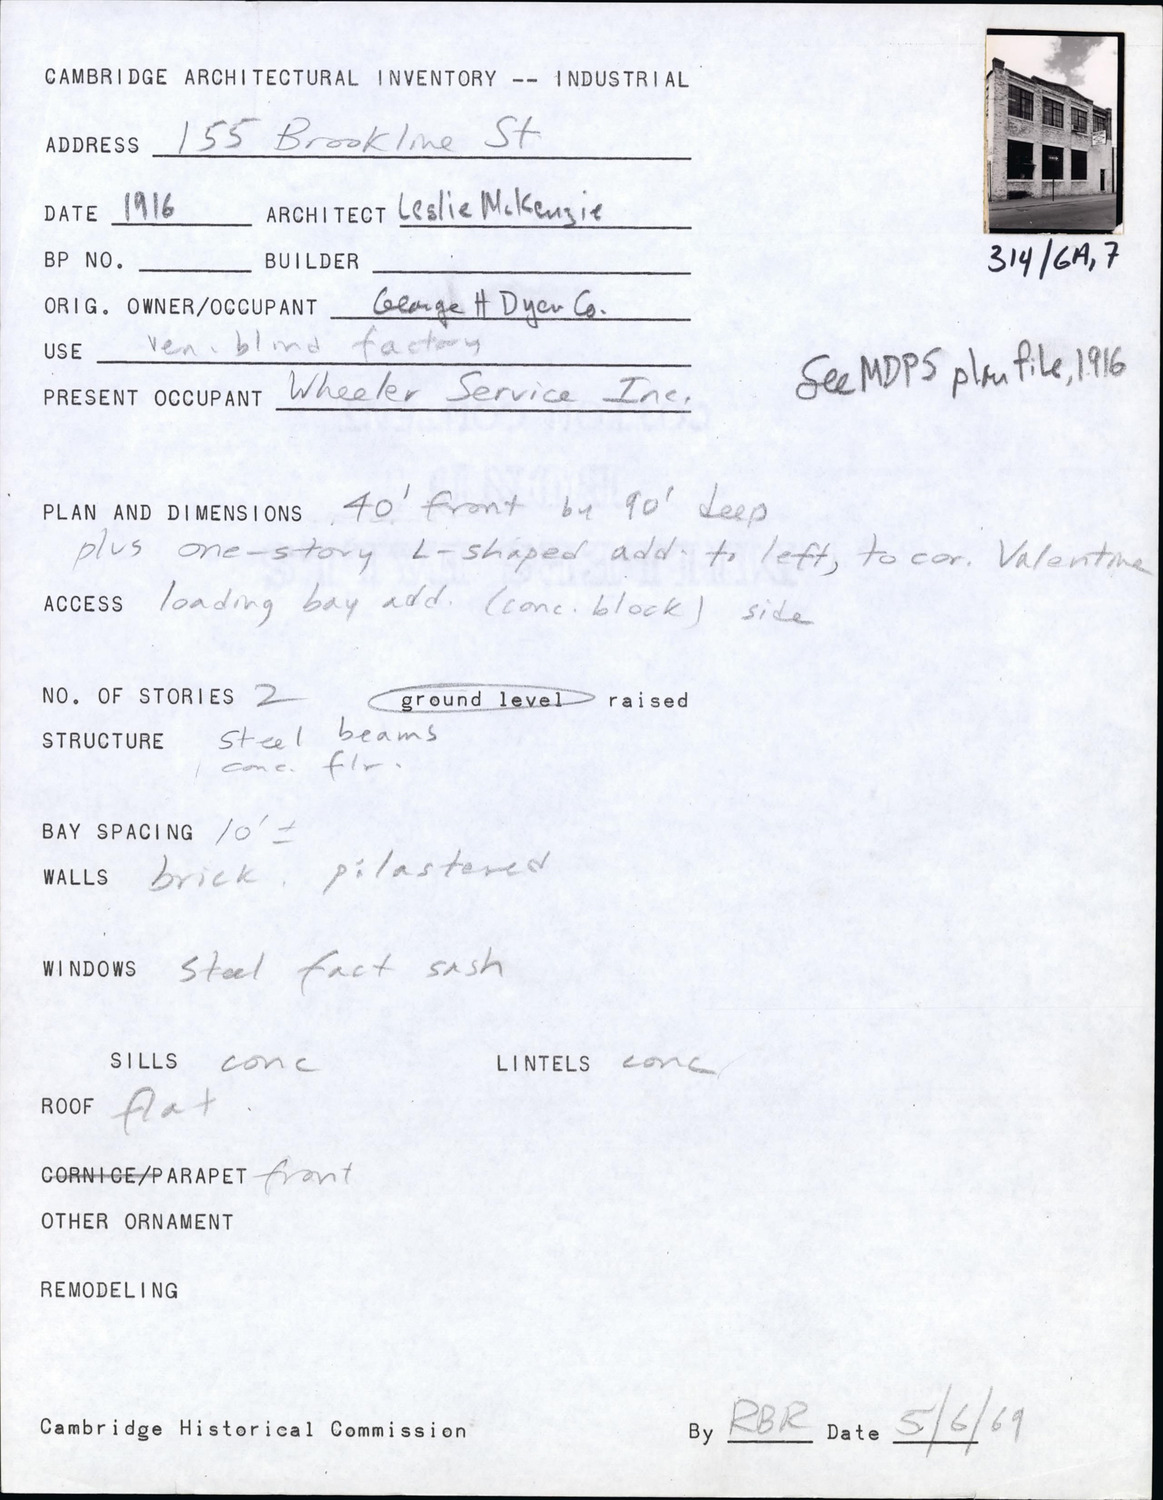 CAMBRIDGE ARCHITECTURAL INVENTORY -- INDUSTRIAL
ADDRESS 155 Brookline St
DATE 1916 ARCHITECT Leslie McKenzie
314/6A,7
BP NO. BUILDER
ORIG. OWNER/OCCUPANT George H Dyer Co.
USE Ven. blind factory
See MDPS plan file, 1916
PRESENT OCCUPANT Wheeler Service Inc.
PLAN AND DIMENSIONS 40' front by 90' deep
plus one-story L-shaped add. to left, to cor. Valentine
ACCESS loading bay add. (conc. block) side
NO. OF STORIES 2 ground level raised
STRUCTURE steel beams
conc. flr.
BAY SPACING 10' ±
WALLS brick. pilastered
WINDOWS steel fact sash
SILLS conc LINTELS conc
ROOF flat.
CORNICE/PARAPET front
OTHER ORNAMENT
REMODELING
Cambridge Historical Commission By RBR Date 5/6/69